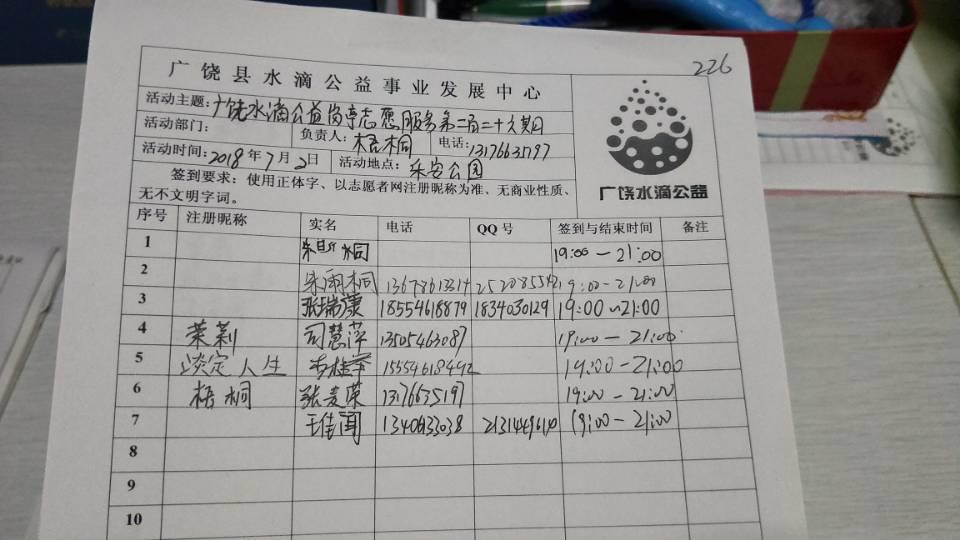 226
广饶县水滴公益事业发展中心
活动主题:广饶水滴公益岗亭志愿服务第二百二十六期
活动部门: 负责人:梧桐 电话:13176635197
活动时间:2018年7月2日 活动地点:乐安公园
签到要求:使用正体字、以志愿者网注册昵称为准、无商业性质、
无不文明字词。
广饶水滴公益
序号 注册昵称 实名 电话 QQ号 签到与结束时间 备注
1 19:00-21:00
2 朱雨桐 19:00-21:00
3 张瑞康 18554618879 1834030129 19:00~21:00
4 茉莉 司慧萍 13505463087 19:00-21:00
5 淡定人生 19:00-21:00
6 梧桐 张爱荣 13176635197 19:00-21:00
7 19:00-21:00
8
9
10